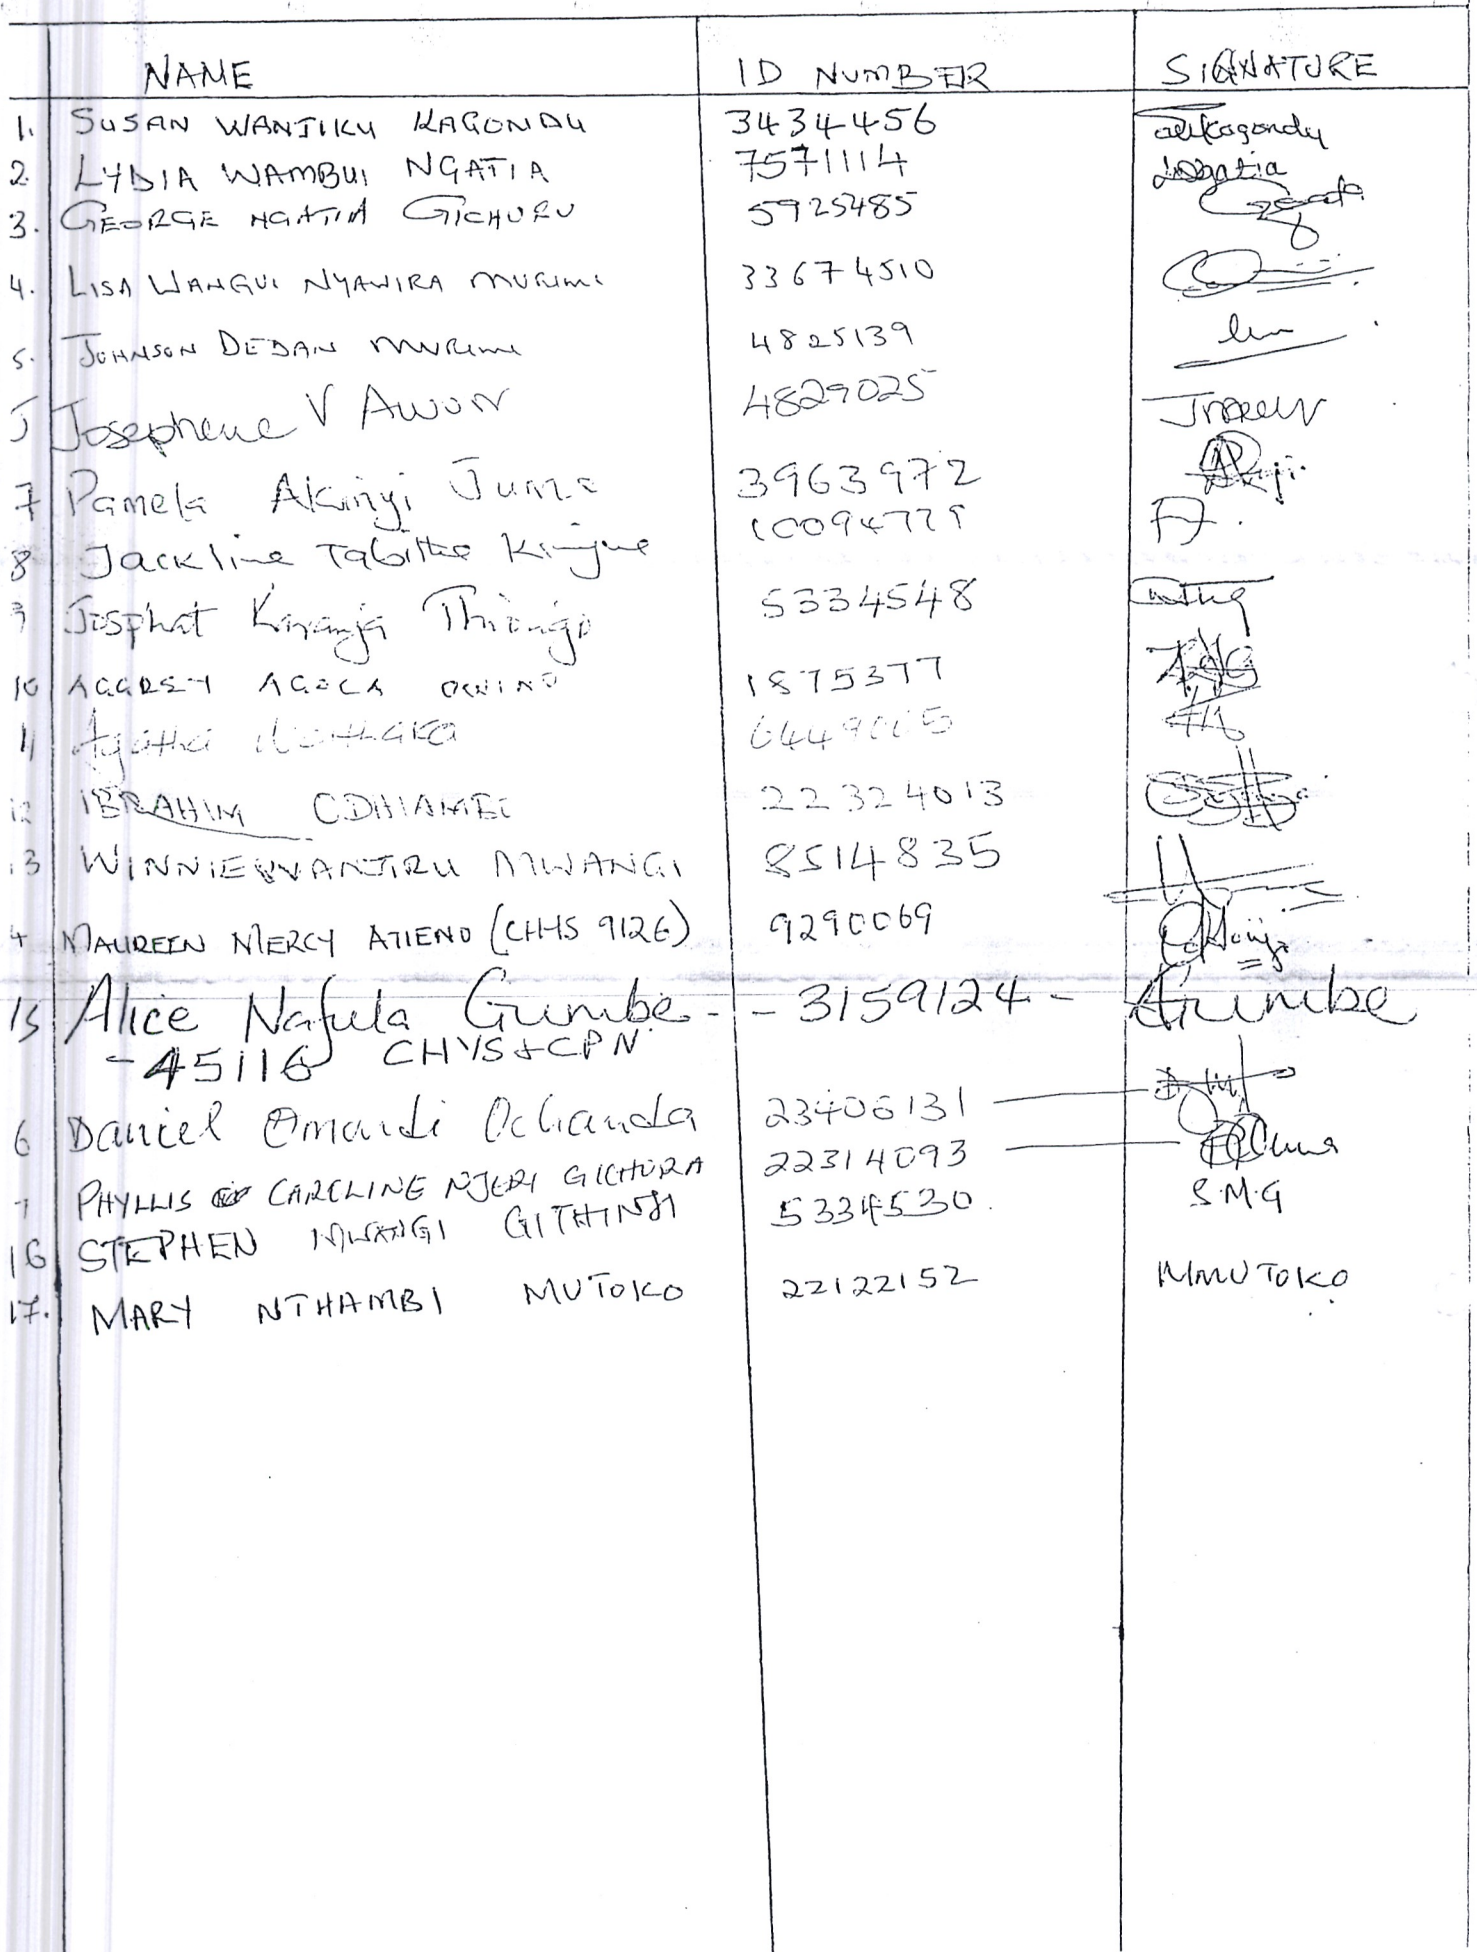 NAME ID NUMBER SIGNATURE
1. SUSAN WANJIKU KAGONDU 3434456 Kagondu
2. LYDIA WAMBUI NGATIA 7571114 Ngatia
3. GEORGE NGATIA GICHURU 5925485
4. LISA WANGUI NYAWIRA MURIMI 33674510
5. JOHNSON DEDAN MURIMI 4825139
Josephene V AWUOR 4829025
7 Pamela Akinyi Juma 3963972
8 Jackline Tabitha
9 Josphat Karanja Thiongo 5334548
10 AGGREY OWINO 1875377
11 Agatha
12 IBRAHIM ODHIAMBO 22324013
13 WINNIE WANJIRU MWANGI 8514835
4 MAUREEN MERCY ATIENO (CHHS 9126) 9290069
15 Alice Nafula Gumbe - - 3159124 - Gumbe
- 45116 CHYS + CPN
6 Daniel Omandi Ochanda 23406131
7 PHYLLIS CAROLINE NJERI GICHURA 22314093
16 STEPHEN MWANGI GITHINJI 5334530. S.M.G
17. MARY NTHAMBI MUTOKO 22122152 MMUTOKO